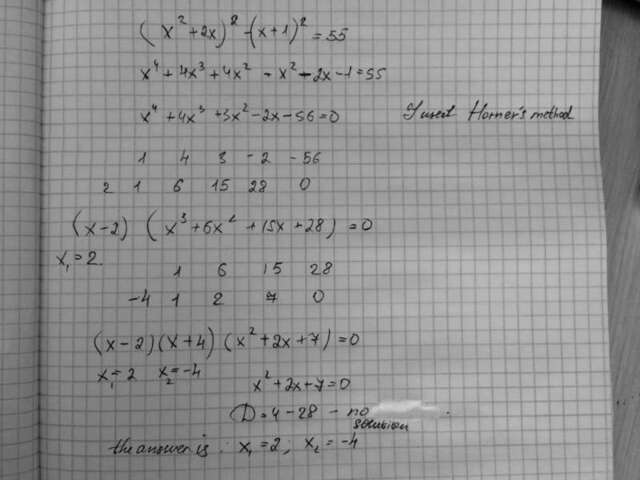 (x² + 2x)² - (x + 1)² = 55
x⁴ + 4x³ + 4x² - x² - 2x - 1 = 55
x⁴ + 4x³ + 3x² - 2x - 56 = 0 I used Horner's method
1 4 3 -2 -56
2 1 6 15 28 0
(x - 2) (x³ + 6x² + 15x + 28) = 0
x₁ = 2.
1 6 15 28
-4 1 2 7 0
(x - 2)(x + 4)(x² + 2x + 7) = 0
x₁ = 2 x₂ = -4
x² + 2x + 7 = 0
D = 4 - 28 - no
solution
the answer is: x₁ = 2; x₂ = -4